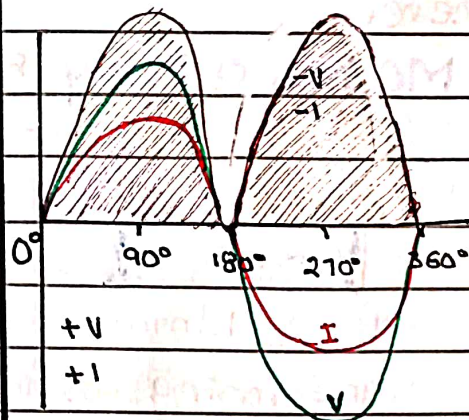 -V
-I
0° 90° 180° 270° 360°
+V
+I
I
V